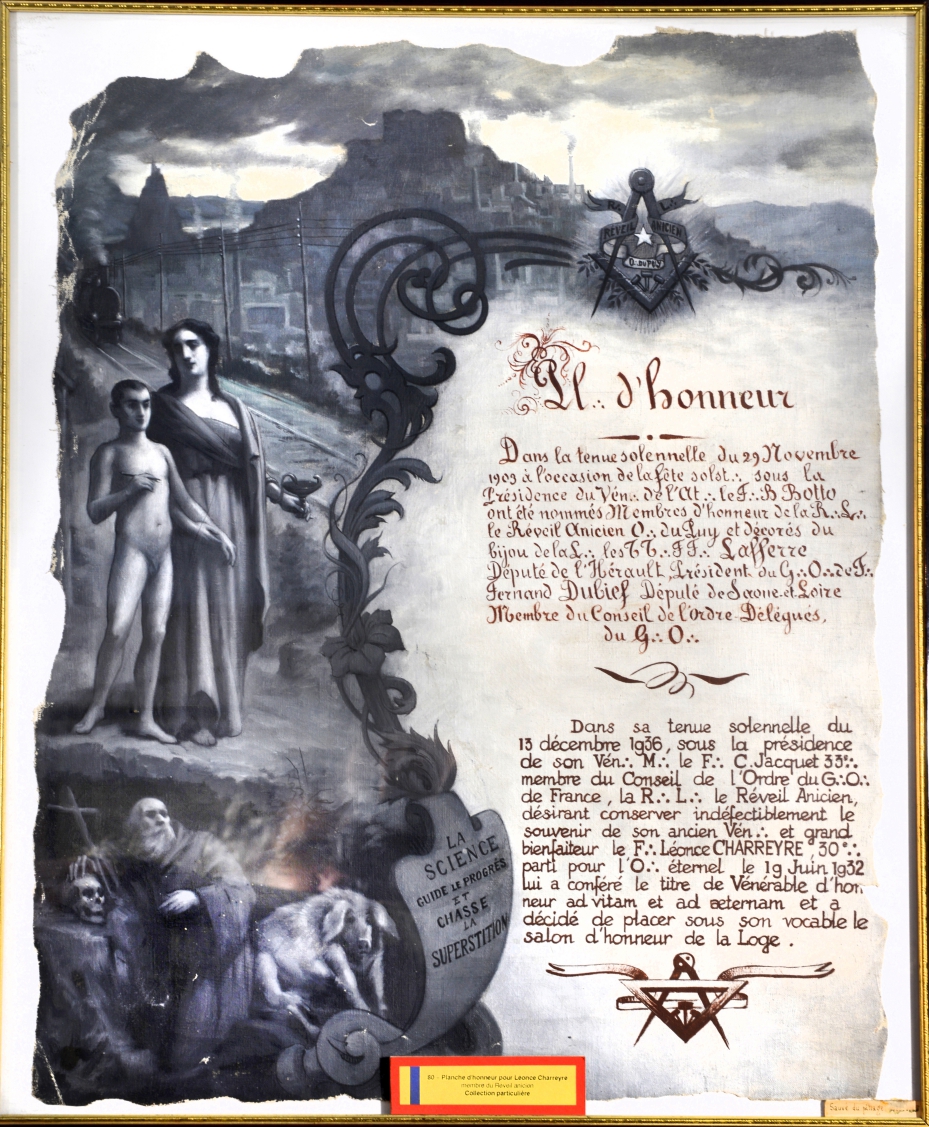 REVEIL ANICIEN
O∴ DU PUY
Pl∴ d'honneur
Dans la tenue solennelle du 29 Novembre
1909 à l'occasion de la fête solst∴ sous la
Présidence du Vén∴ de l'At∴ le F∴ B Botto
ont été nommés Membres d'honneur de la R∴L∴
le Réveil Anicien O∴ du Puy et décorés du
bijou de la L∴ les TT∴ FF∴ Lafferre
Député de l'Hérault, Président du G∴O∴ de F∴
Fernand Dubief Député de Saone et Loire
Membre du Conseil de l'Ordre Délégués,
du G∴ O∴
Dans sa tenue solennelle du
13 décembre 1936, sous la présidence
de son Vén∴ M∴ le F∴ C. Jacquet 33°∴
membre du Conseil de l'Ordre du G∴O∴
de France, la R∴ L∴ le Réveil Anicien,
désirant conserver indéfectiblement le
souvenir de son ancien Vén∴ et grand
bienfaiteur le F∴ Léonce CHARREYRE 30°∴
parti pour l'O∴ éternel le 19 Juin 1932
lui a conféré le titre de Vénérable d'hon
neur ad vitam et ad æternam et a
décidé de placer sous son vocable le
salon d'honneur de la Loge.
LA
SCIENCE
GUIDE LE PROGRÈS
ET
CHASSE
LA
SUPERSTITION
80 - Planche d'honneur pour Léonce Charreyre
membre du Réveil anicien
Collection particulière